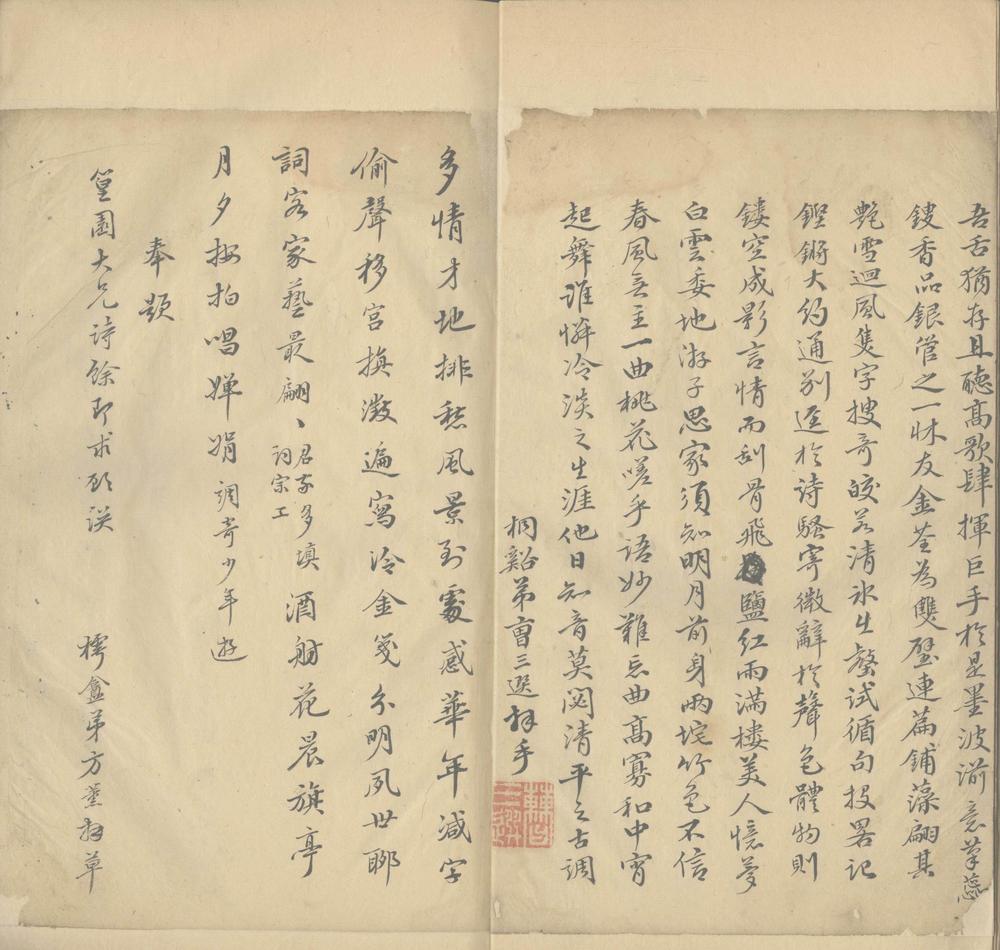 吾舌猶存且聽高歌肆揮巨手於是墨波湔意筆蕊
鎪香品銀管之一牀友金荃為雙璧連篇鋪藻翩其
艷雪迴風隻字搜奇皎若清氷出盤試循句投畧記
鏗鏘大約通別逕於詩騷寄微辭於聲色體物則
鏤空成影言情而刮骨飛鹽紅雨滿樓美人憶夢
白雲委地游子思家須知明月前身兩垞竹色不信
春風無主一曲桃花嗟乎語妙難忘曲高寡和中宵
起舞誰憐冷淡之生涯他日知音莫閟清平之古調
桐谿弟曹三選拜手
多情才地排愁風景到處感華年減字
偷聲移宮換澂遍寫冷金箋分明夙世耶
詞客家藝最翩〻君家多填詞宗工酒舫花晨旗亭
月夕按拍唱嬋娟調寄少年遊
奉題
篁園大兄詩餘即求𠛬誤
樗盦弟方薰拜草